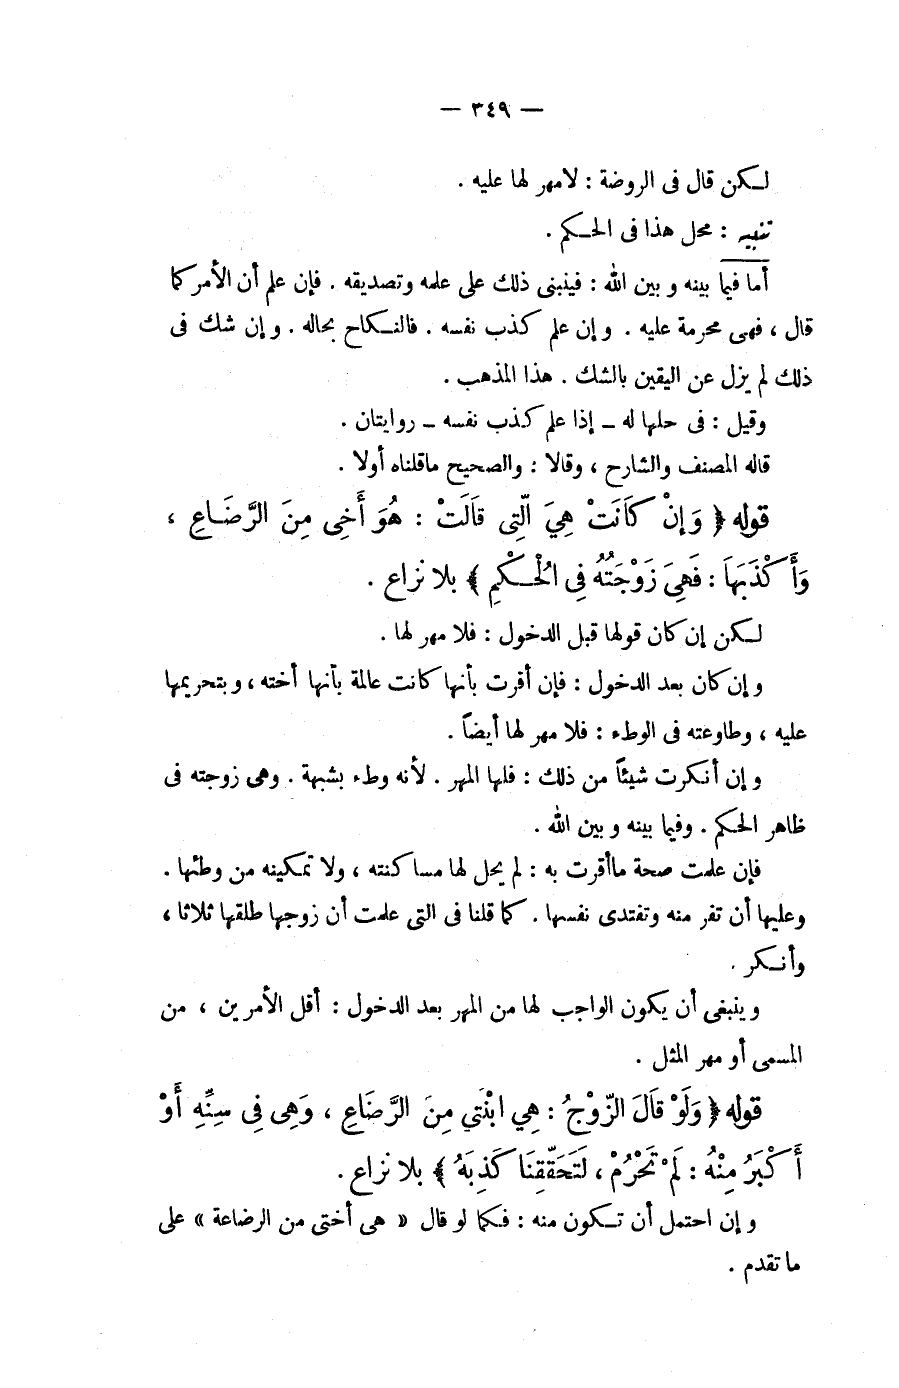 — ٣٤٩ —
لكن قال فى الروضة : لامهر لها عليه .
تنبيه : محل هذا فى الحكم .
أما فيما بينه وبين الله : فينبنى ذلك على علمه وتصديقه . فإن علم أن الأمر كما
قال ، فهى محرمة عليه . وإن علم كذب نفسه . فالنكاح بحاله . وإن شك فى
ذلك لم يزل عن اليقين بالشك . هذا المذهب .
وقيل : فى حلها له ــ إذا علم كذب نفسه ــ روايتان .
قاله المصنف والشارح ، وقالا : والصحيح ماقلناه أولا .
قوله ﴿ وَإِنْ كَانَتْ هِيَ الَّتِى قَالَتْ : هُوَ أَخِى مِنَ الرَّضَاعِ ،
وَأَكْذَبَهَا : فَهِىَ زَوْجَتُهُ فِى الْحُكْمِ ﴾ بلا نزاع .
لكن إن كان قولها قبل الدخول : فلا مهر لها .
وإن كان بعد الدخول : فإن أقرت بأنها كانت عالمة بأنها أخته ، وبتحريمها
عليه ، وطاوعته فى الوطء : فلا مهر لها أيضاً .
وإن أنكرت شيئاً من ذلك : فلها المهر . لأنه وطء بشبهة . وهى زوجته فى
ظاهر الحكم . وفيما بينه وبين الله .
فإن علمت صحة ماأقرت به : لم يحل لها مساكنته ، ولا تمكينه من وطئها .
وعليها أن تفر منه وتفتدى نفسها . كما قلنا فى التى علمت أن زوجها طلقها ثلاثا ،
وأنكر .
وينبغى أن يكون الواجب لها من المهر بعد الدخول : أقل الأمرين ، من
المسمى أو مهر المثل .
قوله ﴿ وَلَوْ قَالَ الزَّوْجُ : هِيَ ابْنَتِي مِنَ الرَّضَاعِ ، وَهِى فِى سِنِّهِ أَوْ
أَكْبَرُ مِنْهُ : لَمْ تَحْرُمْ ، لَتَحَقُّقِنَا كَذِبَهُ ﴾ بلا نزاع .
وإن احتمل أن تكون منه : فكما لو قال « هى أختى من الرضاعة » على
ما تقدم .